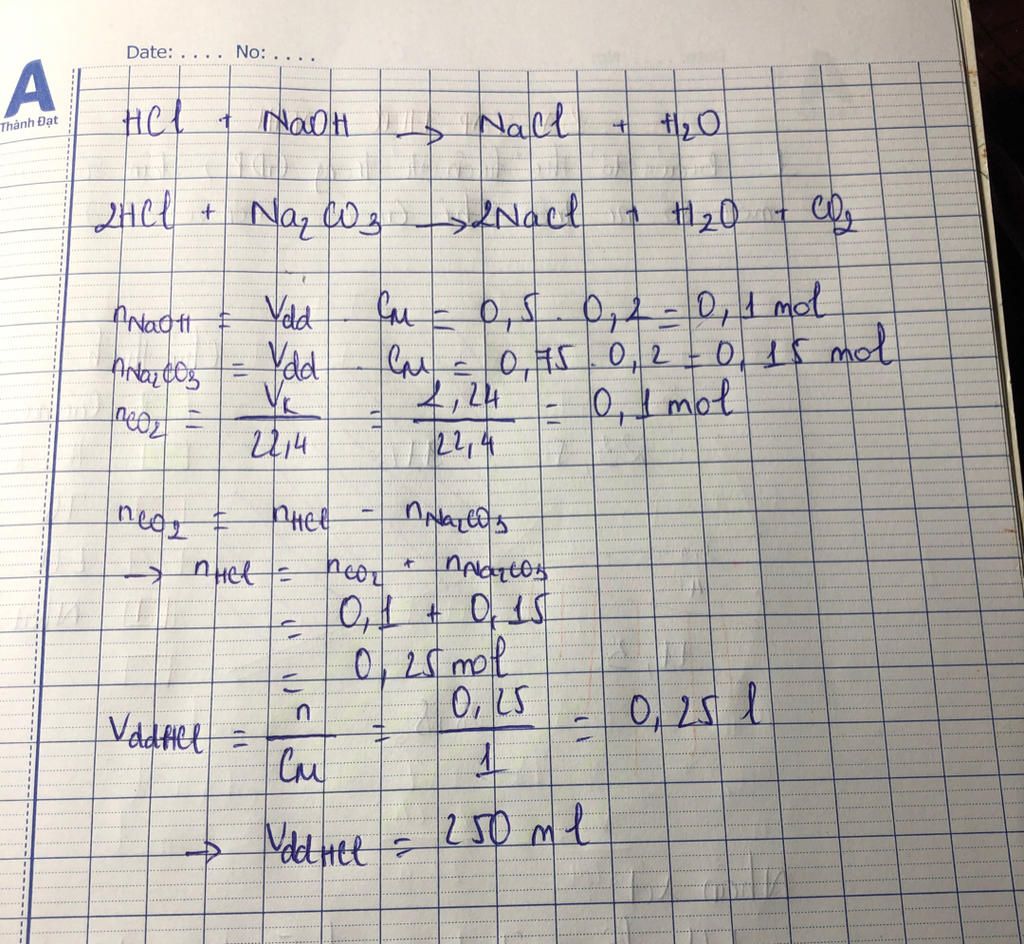 Date: .... No: ....
A
Thành Đạt
HCl + NaOH → NaCl + H₂O
2HCl + Na₂CO₃ → 2NaCl + H₂O + CO₂
nNaOH = Vdd . CM = 0,5 . 0,2 = 0,1 mol
nNa₂CO₃ = Vdd . CM = 0,75 . 0,2 = 0,15 mol
nCO₂ = Vk / 22,4 = 2,24 / 22,4 = 0,1 mol
nCO₂ = nHCl - nNa₂CO₃
→ nHCl = nCO₂ + nNa₂CO₃
= 0,1 + 0,15
= 0,25 mol
VddHCl = n / CM = 0,25 / 1 = 0,25 l
→ VddHCl = 250 ml